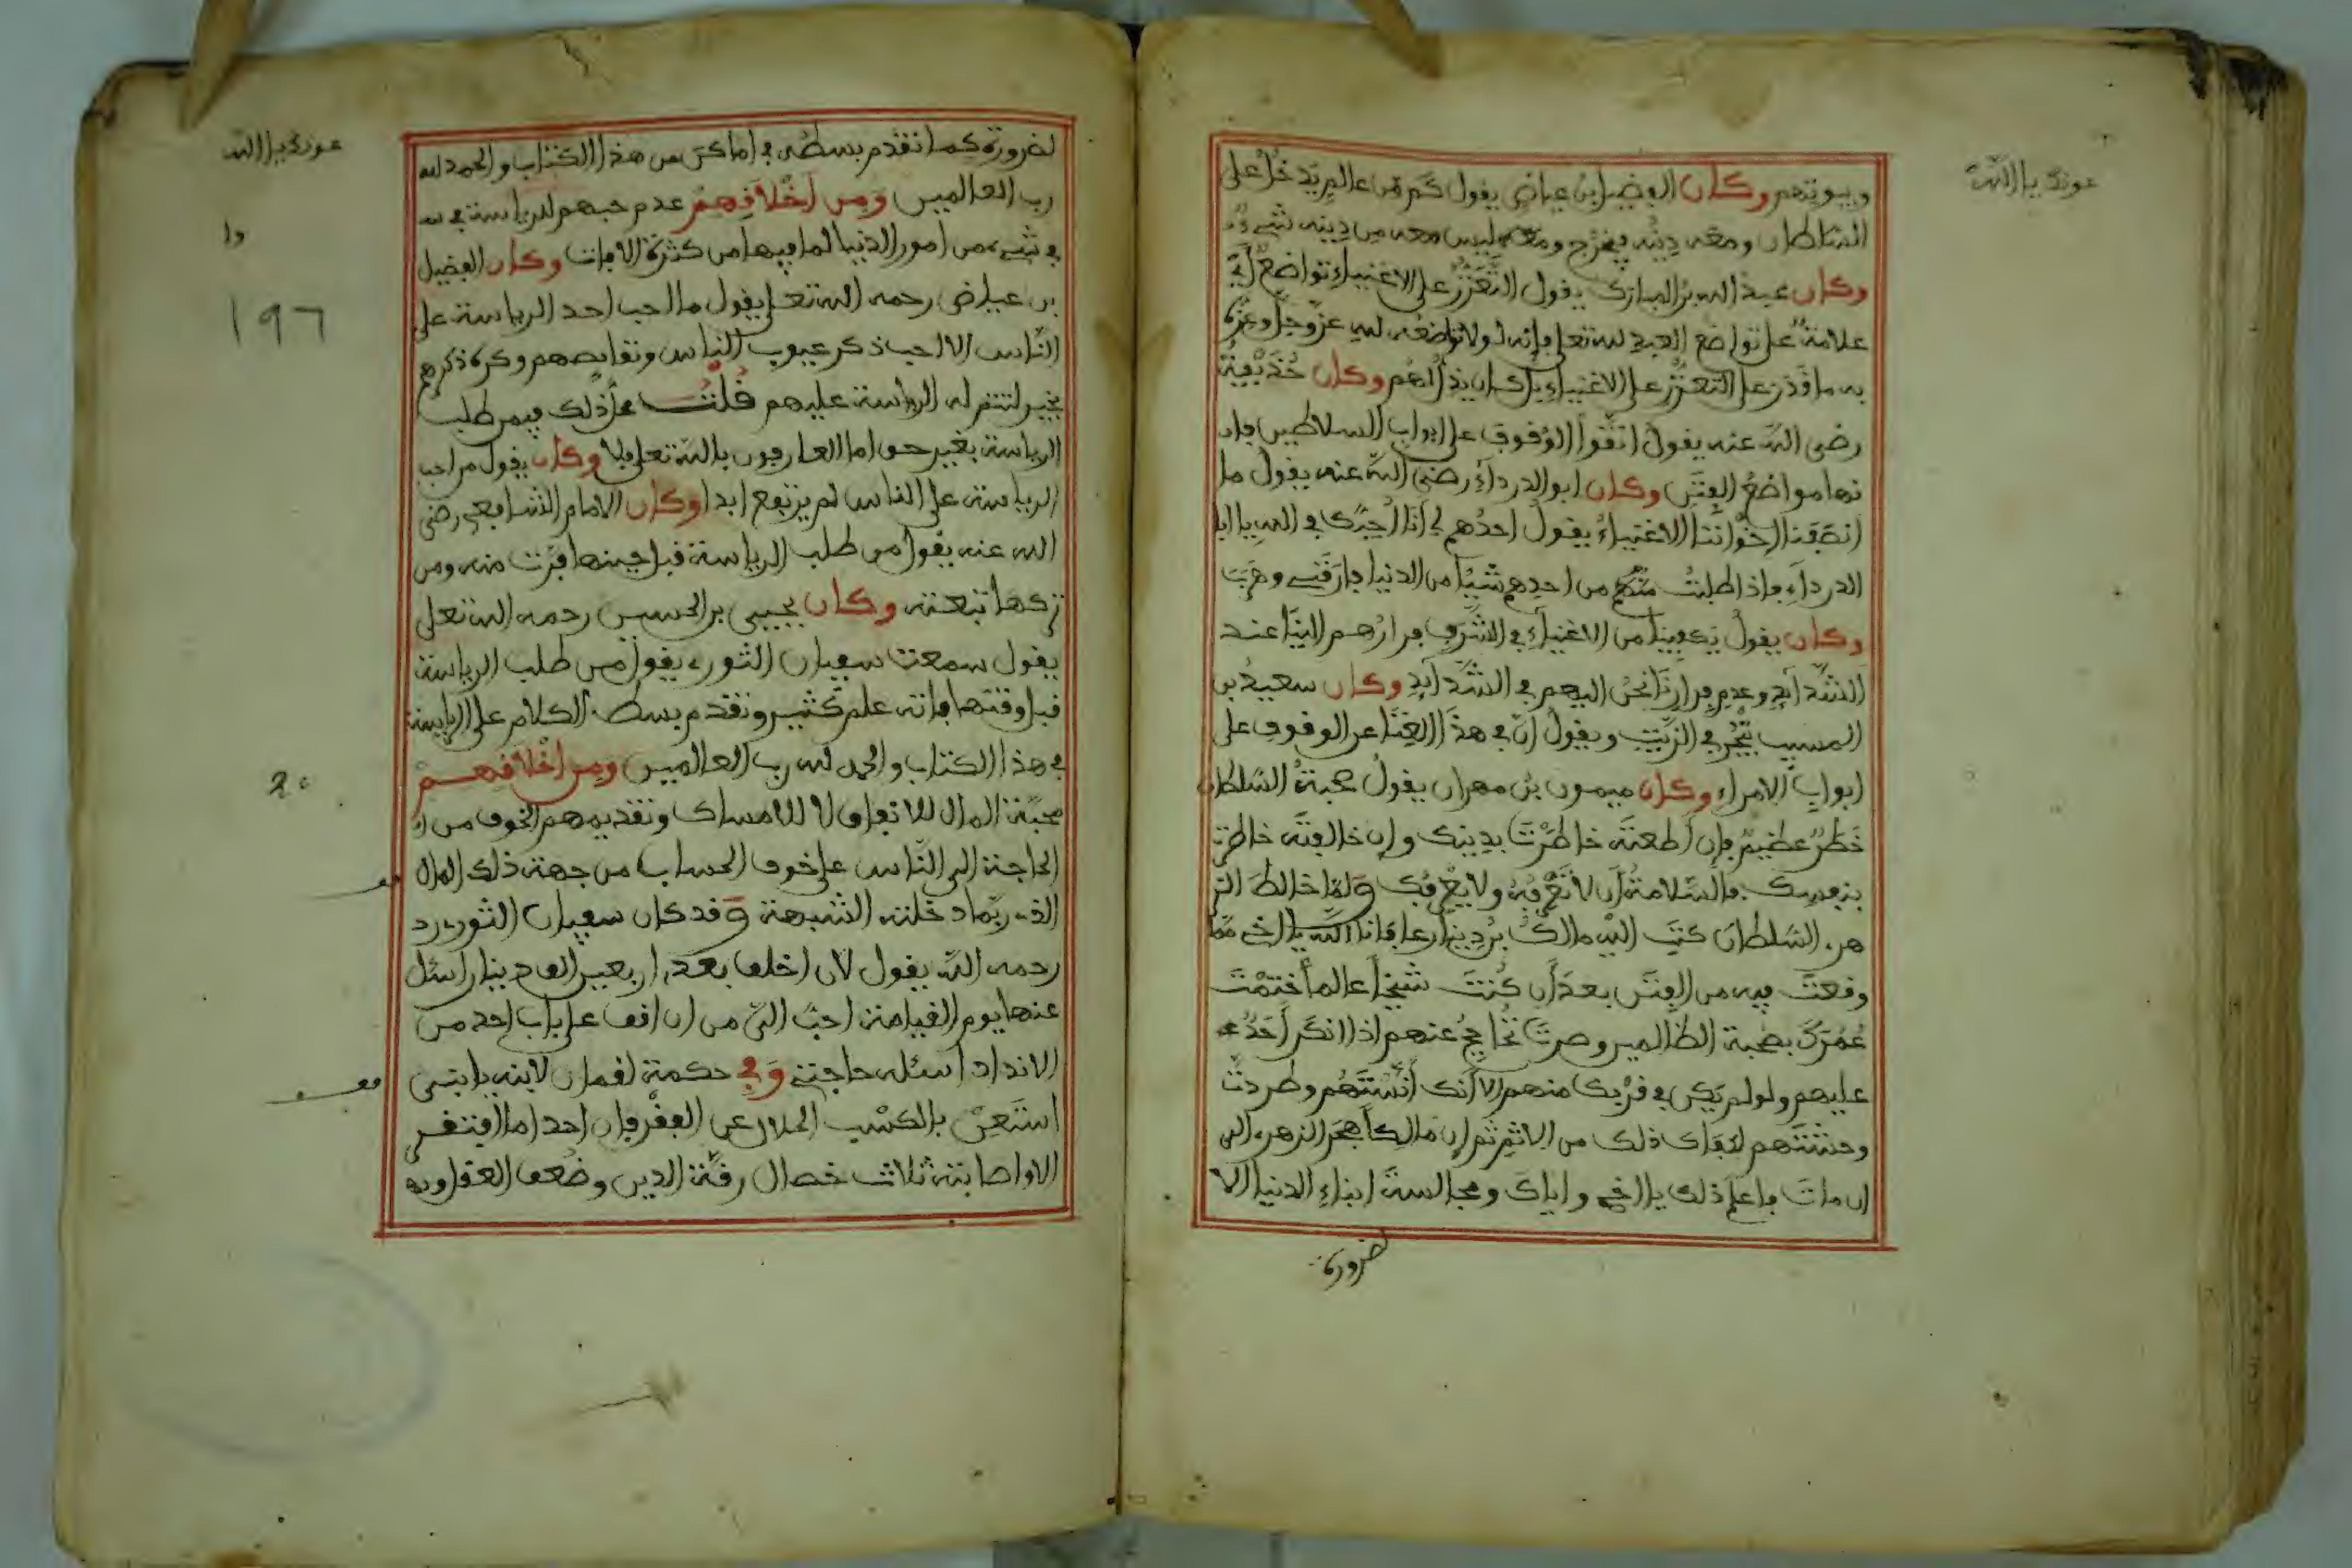 عونك يا الله
وبيوتهم وكان الفضيل ابن عياض يقول كم من عالم يدخل على
السلطان ومعه دينه فيخرج وما معه ليس معه من دينه شيء
وكان عبد الله بن المبارك يقول التعزز على الاغنياء تواضع
علامة على تواضع العبد لله تعلى فإنه لولا تواضعه لله عز وجل وعزه
به ما قدر على التعزز على الاغنياء بل كان يذل لهم وكان حذيفة
رضى الله عنه يقول اتقوا الوقوف على ابواب السلاطين فا
نها مواضع الفتن وكان ابو الدرداء رضى الله عنه يقول ما
انصفنا اخواننا الاغنياء يقول احدهم لي انا احبك في الله يا ابا
الدرداء فاذا طلبت من احدهم شيئا من الدنيا فارقني وهرب
وكان يقول يكفينا من الاغنياء في الشرف فرارهم الينا عند
الشدآئد وعدم فرارنا نحن اليهم في الشدآئد وكان سعيد بن
المسيب يتجر في الزيت ويقول ان في هذا الغنا عن الوقوف على
ابواب الامراء وكان ميمون بن مهران يقول صحبة السلطان
خطر عظيم فإن اطعته خاطرت بدينك وان خالفته خاطرت
بنفسك فالسلامة أن لا تعرفه ولا يعرفك ولما خالط الز
هري السلطان كتب اليه مالك بن دينار عافانا الله يا اخي مما
وقعت فيه من الفتن بعد أن كنت شيخا عالما ختمت
عمرك بصحبة الظالمين وصرت تحاجج عنهم اذا انكر أحد
عليهم ولو لم يكن في قربك منهم الا أنك أنستهم وطردت
وحشتهم لكفاك ذلك من الاثم ثم إن مالكا هجر الزهري الى
ان مات فاعلم ذلك يا اخي واياك ومجالسة ابناء الدنيا الا
لضرورة
عونك يا الله
لضرورة كما تقدم بسطه في اماكن من هذا الكتاب والحمد لله
رب العالمين ومن اخلاقهم عدم حبهم للرياسة في
في شيء من امور الدنيا لما فيها من كثرة الافات وكان الفضيل
بن عياض رحمه الله تعلى يقول ما احب احد الرياسة على
الناس الا احب ذكر عيوب الناس ونقايصهم وكره ذكرهم
بخير لتتم له الرياسة عليهم قلت محل ذلك فيمن طلب
الرياسة بغير حق اما العارفون بالله تعلى فلا وكان يقول من احب
الرياسة على الناس لم يرتفع ابدا وكان الامام الشافعي رضى
الله عنه يقول من طلب الرياسة قبل حينها فرت منه ومن
تركها تبعته وكان يحيى بن الحسين رحمه الله تعلى
يقول سمعت سفيان الثوري يقول من طلب الرياسة
قبل وقتها فاته علم كثير وتقدم بسط الكلام على الرياسة
في هذا الكتاب والحمد لله رب العالمين ومن اخلاقهم
محبة المال للانفاق لا للامساك وتقديمهم الخوف من
الحاجة الى الناس على خوف الحساب من جهة ذلك المال
الذي ربما دخلته الشبهة وقد كان سفيان الثوري
رحمه الله يقول لان اخلف بعدي اربعين الف دينار اسئل
عنها يوم القيامة احب الي من ان اقف على باب احد من
الانداد اسئله حاجتي وفي حكمة لقمان لابنه يا بني
استعن بالكسب الحلال عن الفقر فإن احدا ما افتقر
الا واصابته ثلاث خصال رقة الدين وضعف العقل و
١٩٦